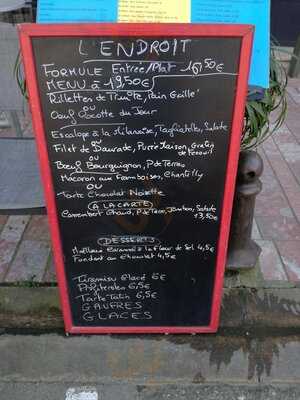 L'ENDROIT
FORMULE Entrée/Plat 16,50€
MENU à 19,50€
Rillettes de Truite, Pain Grillé
ou
Oeuf Cocotte du Jour
Escalope à la Milanaise, Tagliatelles, Salade
ou
Filet de Daurade, Purée Maison, Gratin
de Fenouil
ou
Bœuf Bourguignon, P de Terre
Macaron aux Framboises, Chantilly
ou
Tarte Chocolat Noisette
(À LA CARTE)
Camembert Chaud, P de Terre, Jambon, Salade
13,50€
DESSERTS
Moelleux Caramel à la Fleur de Sel 4,5€
Fondant au Chocolat 4,5€
Tiramisu Glacé 6€
Profiteroles 6,5€
Tarte Tatin 6,5€
GAUFRES
GLACES